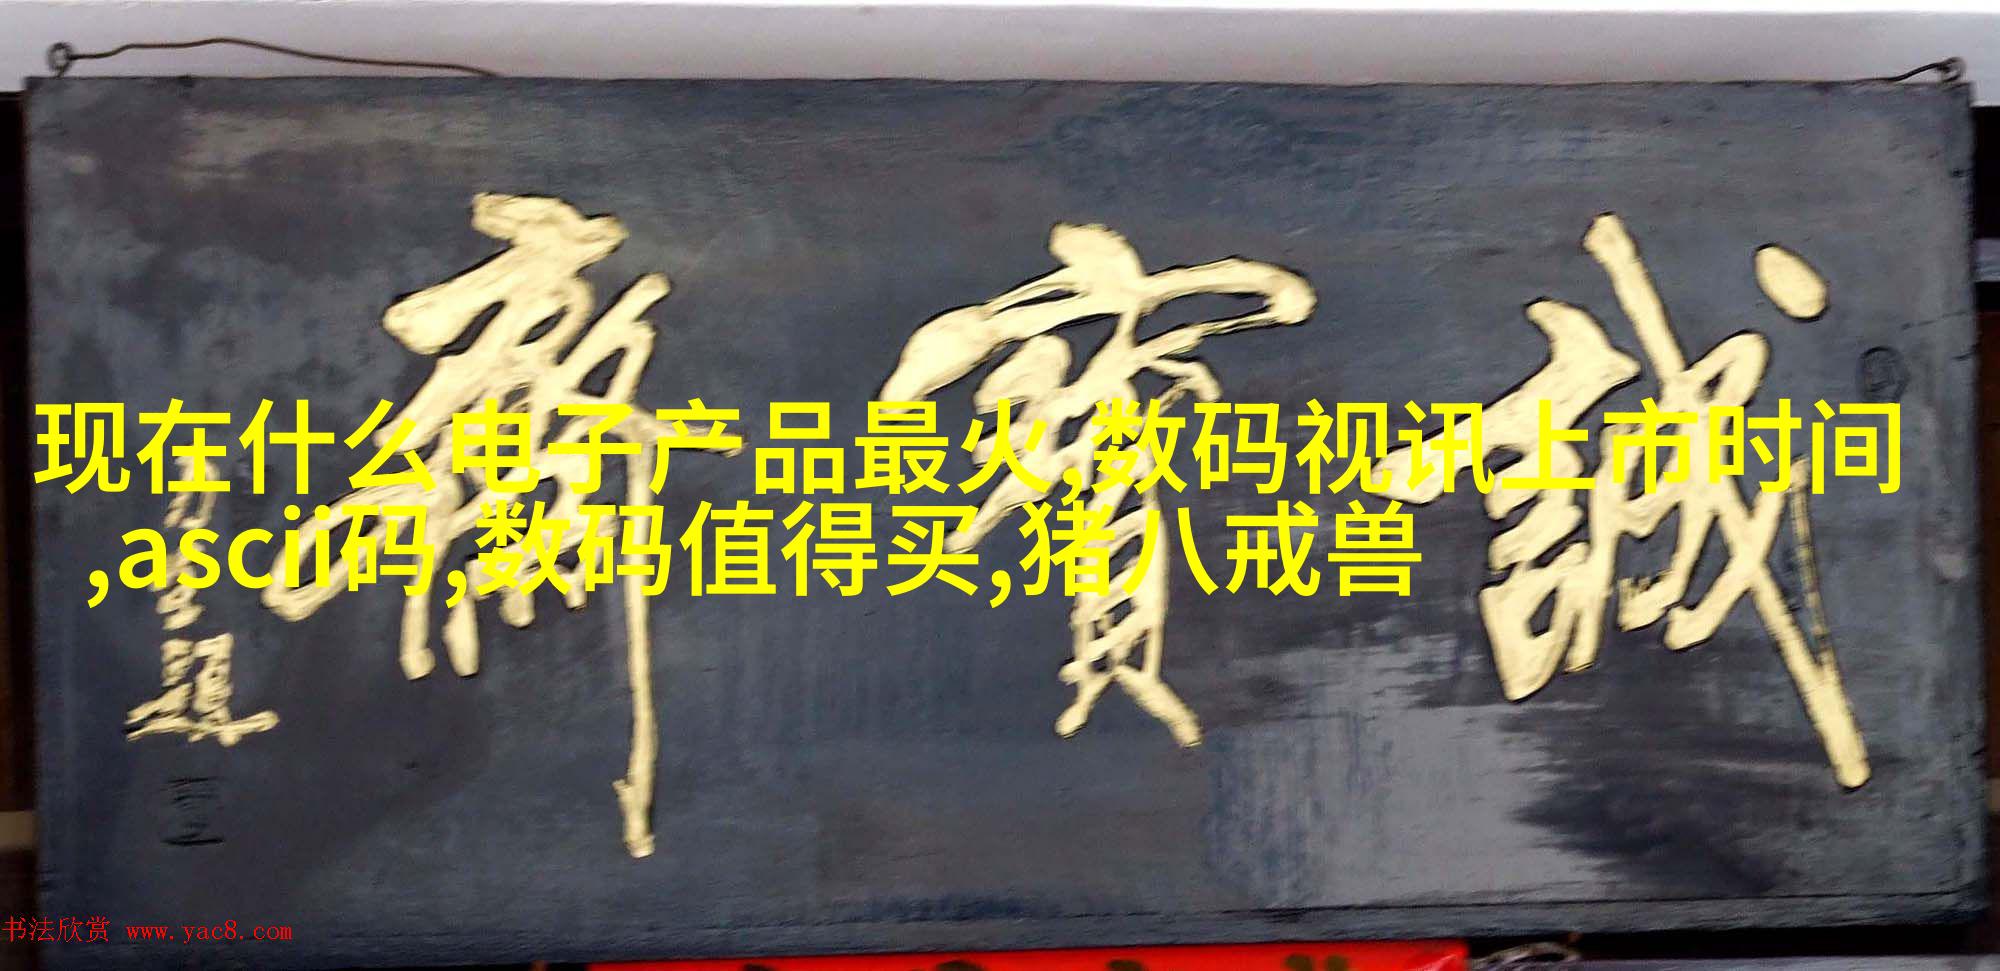 誠寶齋
现在什么电子产品最火,数码视讯上市时间
,ascii码,数码值得买,猪八戒兽
书法欣赏 www.yac8.com